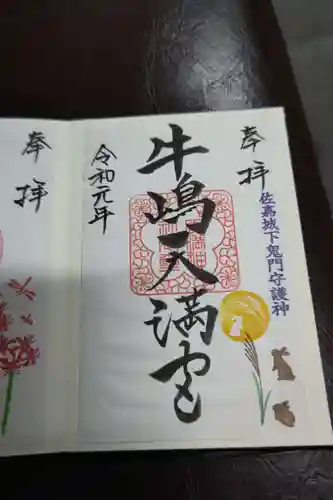 奉拝
佐嘉城下鬼門守護神
牛嶋天満宮
令和元年
奉拝